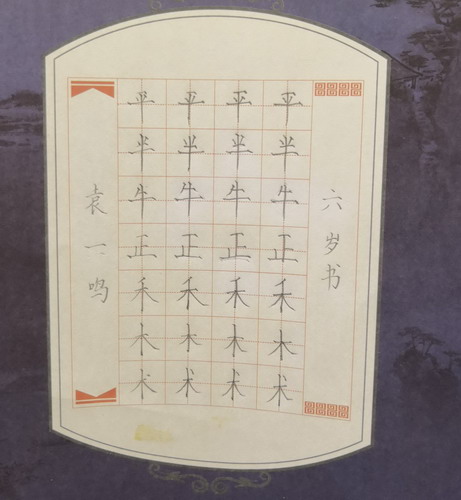 平平平平
半半半半
牛牛牛牛
正正正正
禾禾禾禾
木木木木
术术术术
六岁书
袁一鸣